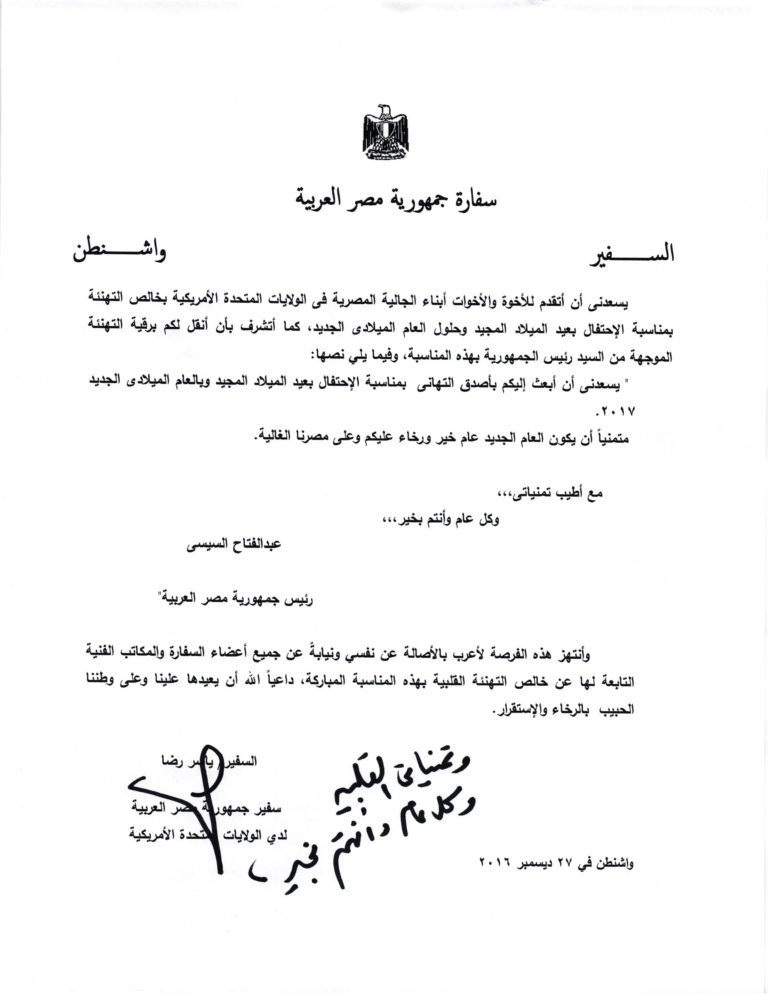 سفارة جمهورية مصر العربية
الســـــفير
واشـــــنطن
يسعدنى أن أتقدم للأخوة والأخوات أبناء الجالية المصرية فى الولايات المتحدة الأمريكية بخالص التهنئة
بمناسبة الإحتفال بعيد الميلاد المجيد وحلول العام الميلادى الجديد، كما أتشرف بأن أنقل لكم برقية التهنئة
الموجهة من السيد رئيس الجمهورية بهذه المناسبة، وفيما يلي نصها:
" يسعدنى أن أبعث إليكم بأصدق التهانى بمناسبة الإحتفال بعيد الميلاد المجيد وبالعام الميلادى الجديد
٢٠١٧.
متمنياً أن يكون العام الجديد عام خير ورخاء عليكم وعلى مصرنا الغالية.
مع أطيب تمنياتى،،،
وكل عام وأنتم بخير،،،
عبدالفتاح السيسى
رئيس جمهورية مصر العربية"
وأنتهز هذه الفرصة لأعرب بالأصالة عن نفسي ونيابةً عن جميع أعضاء السفارة والمكاتب الفنية
التابعة لها عن خالص التهنئة القلبية بهذه المناسبة المباركة، داعياً الله أن يعيدها علينا وعلى وطننا
الحبيب بالرخاء والإستقرار.
السفير/ ياسر رضا
سفير جمهورية مصر العربية
لدي الولايات المتحدة الأمريكية
وتمنياتى القلبية
وكل عام وأنتم بخير،
واشنطن في ٢٧ ديسمبر ٢٠١٦